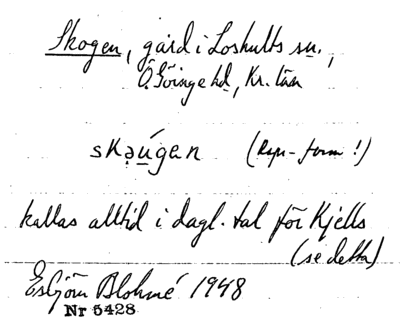 Skogen, gård i Loshults sn.,
Ö. Göinge hd, Kr. län
skǝú̱gan (Rspr-form!)
kallas alltid i dagl. tal för Kjells
(se detta)
Esbjörn Blohmé 1948
Nr 5428